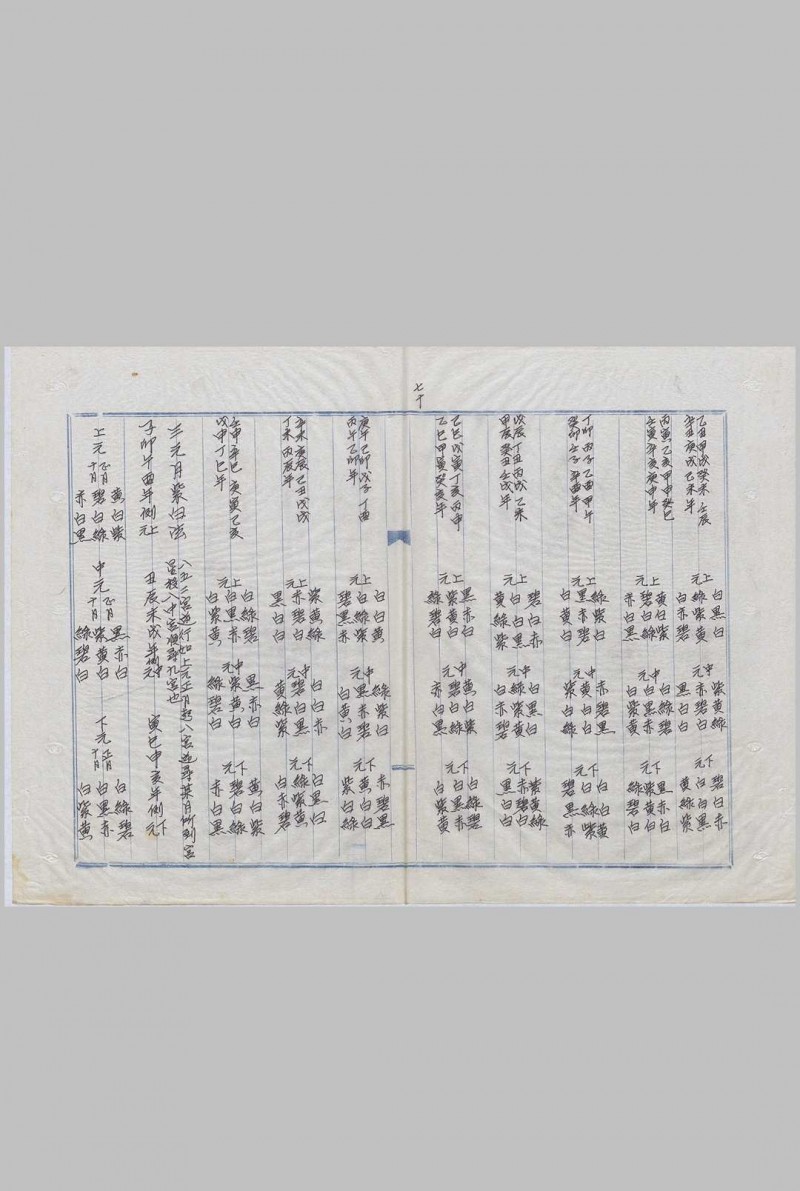 乙丑甲戌癸未壬辰
辛丑庚戌己未年
上元
白黑白
綠紫黃
白赤碧
中元
紫黃綠
赤碧白
黑白白
下元
碧白赤
白白黑
黃綠紫
丙寅乙亥甲申癸巳
壬寅辛亥庚申年
上元
黃白紫
碧白綠
赤白黑
中元
白綠碧
白黑赤
白紫黃
下元
黑赤白
紫黃白
綠碧白
丁卯丙子乙酉甲午
癸卯壬子辛酉年
上元
綠紫白
黑赤碧
白黃白
中元
赤碧黑
黃白白
紫白綠
下元
白白黃
白綠紫
碧黑赤
戊辰丁丑丙戌乙未
甲辰癸丑壬戌年
上元
碧白赤
白白黑
黃綠紫
中元
白黑白
綠紫黃
白赤碧
下元
紫黃綠
赤碧白
黑白白
己巳戊寅丁亥丙申
乙巳甲寅癸亥年
上元
黑赤白
紫黃白
綠碧白
中元
黃白紫
碧白綠
赤白黑
下元
白綠碧
白黑赤
白紫黃
七十
庚午己卯戊子丁酉
丙午乙卯年
上元
白白黃
白綠紫
碧黑赤
中元
綠紫白
黑赤碧
白黃白
下元
赤碧黑
黃白白
紫白綠
辛未庚辰己丑戊戌
丁未丙辰年
上元
紫黃綠
赤碧白
黑白白
中元
白白赤
碧白黑
黃綠紫
下元
白黑白
綠紫黃
白赤碧
壬申辛巳庚寅己亥
戊申丁巳年
上元
白綠碧
白黑赤
白紫黃
中元
黑赤白
紫黃白
綠碧白
下元
黃白紫
碧白綠
赤白黑
三元月紫白法
八五二宮逆行如上元正月起八宮逆尋某月所到宮
星移入中宮順尋九宮也
子卯午酉年例上元 丑辰未戌年例中元 寅巳申亥年例下元
上元 正月十月
黃白紫
碧白綠
赤白黑
中元 正月十月
黑赤白
紫黃白
綠碧白
下元 正月十月
白綠碧
白黑赤
白紫黃